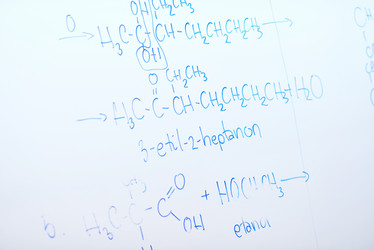 OH CH₂CH₃
O
H₃C-C-CH-CH₂CH₂CH₂CH₃ →
OH
O CH₂CH₃
→ H₃C-C-CH-CH₂CH₂CH₂CH₃ + H₂O
3-etil-2-heptanon
b. H₃C-C-C O OH + HOCH₂CH₃ →
etanol